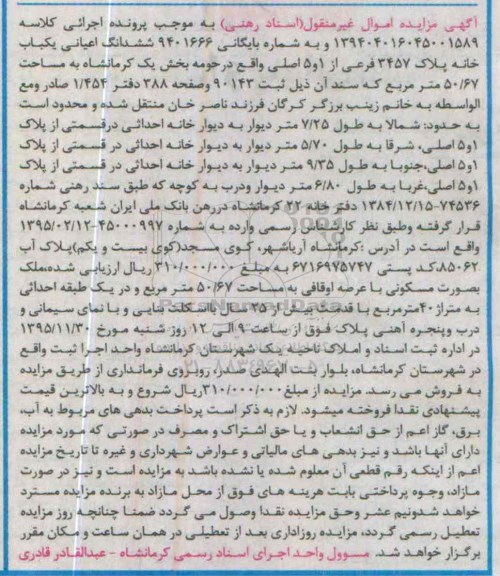 آگهی مزایده اموال غیرمنقول(اسناد رهنی) به موجب پرونده اجرائی کلاسه
۱۳۹۴۰۴۰۱۶۰۴۵۰۰۱۵۸۹ و به شماره بایگانی ۹۴۰۱۶۶۶ ششدانگ اعیانی یکباب
خانه پلاک ۳۴۵۷ فرعی از ۱و۵ اصلی واقع درحومه بخش یک کرمانشاه به مساحت
۵۰/۶۷ متر مربع که سند آن ذیل ثبت ۹۰۱۴۳ وصفحه ۳۸۸ دفتر ۱/۴۵۴ صادر ومع
الواسطه به خانم زینب برزگر کرگان فرزند ناصر خان منتقل شده و محدود است
به حدود: شمالا به طول ۷/۲۵ متر دیوار به دیوار خانه احداثی درقسمتی از پلاک
۱و۵ اصلی، شرقا به طول ۵/۷۰ متر دیوار به دیوار خانه احداثی در قسمتی از پلاک
۱و۵ اصلی،جنوبا به طول ۹/۳۵ متر دیوار به دیوار خانه احداثی در قسمتی از پلاک
۱و۵ اصلی،غربا به طول ۶/۸۰ متر دیوار ودرب به کوچه که طبق سند رهنی شماره
۷۴۵۳۶-۱۳۸۴/۱۲/۱۵ دفتر خانه ۲۲ کرمانشاه دررهن بانک ملی ایران شعبه کرمانشاه
قرار گرفته وطبق نظر کارشناس رسمی وارده به شماره ۴۵۰۰۰۹۹۷-۱۳۹۵/۰۲/۱۲
واقع است در آدرس :کرمانشاه آریاشهر، کوی مسجد(کوی بیست و یکم)پلاک آب
۸۵۰۶۲،کد پستی ۶۷۱۶۹۷۵۷۴۷ به مبلغ ۳۱۰/۰۰۰/۰۰۰ ریال ارزیابی شده،ملک
بصورت مسکونی با عرصه اوقافی به مساحت ۵۰/۶۷ متر مربع و در یک طبقه احداثی
به متراژ ۴۰مترمربع با قدمت بیش از ۲۵ سال بااسکلت بنایی و با نمای سیمانی و
درب وپنجره آهنی پلاک فوق از ساعت ۹ الی ۱۲ روز شنبه مورخ ۱۳۹۵/۱۱/۳۰
در اداره ثبت اسناد و املاک ناحیه یک شهرستان کرمانشاه واحد اجرا ثبت واقع
در شهرستان کرمانشاه، بلوار بنت الهدی صدر، روبروی فرمانداری از طریق مزایده
به فروش می رسد. مزایده از مبلغ ۳۱۰/۰۰۰/۰۰۰ریال شروع و به بالاترین قیمت
پیشنهادی نقدا فروخته میشود. لازم به ذکر است پرداخت بدهی های مربوط به آب،
برق، گاز اعم از حق انشعاب و یا حق اشتراک و مصرف در صورتی که مورد مزایده
دارای آنها باشد و نیز بدهی های مالیاتی و عوارض شهرداری و غیره تا تاریخ مزایده
اعم از اینکه رقم قطعی آن معلوم شده یا نشده باشد به مزایده است و نیز در صورت
مازاد، وجوه پرداختی بابت هزینه های فوق از محل مازاد به برنده مزایده مسترد
خواهد شدونیم عشر وحق مزایده نقدا وصول می گردد ضمنا چنانچه روز مزایده
تعطیل رسمی گردد، مزایده روزاداری بعد از تعطیلی در همان ساعت و مکان مقرر
برگزار خواهد شد. مسوول واحد اجرای اسناد رسمی کرمانشاه - عبدالقادر قادری